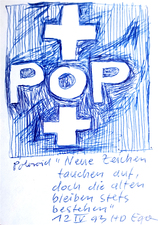 POP
Poloroid "Neue Zeichen
tauchen auf,
doch die alten
bleiben stets
bestehen"
12 IV 95 HD Eger